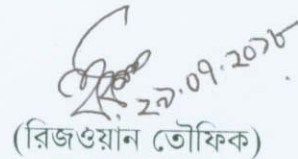 ২৯.০৭.২০১৮
(রিজওয়ান তৌফিক)